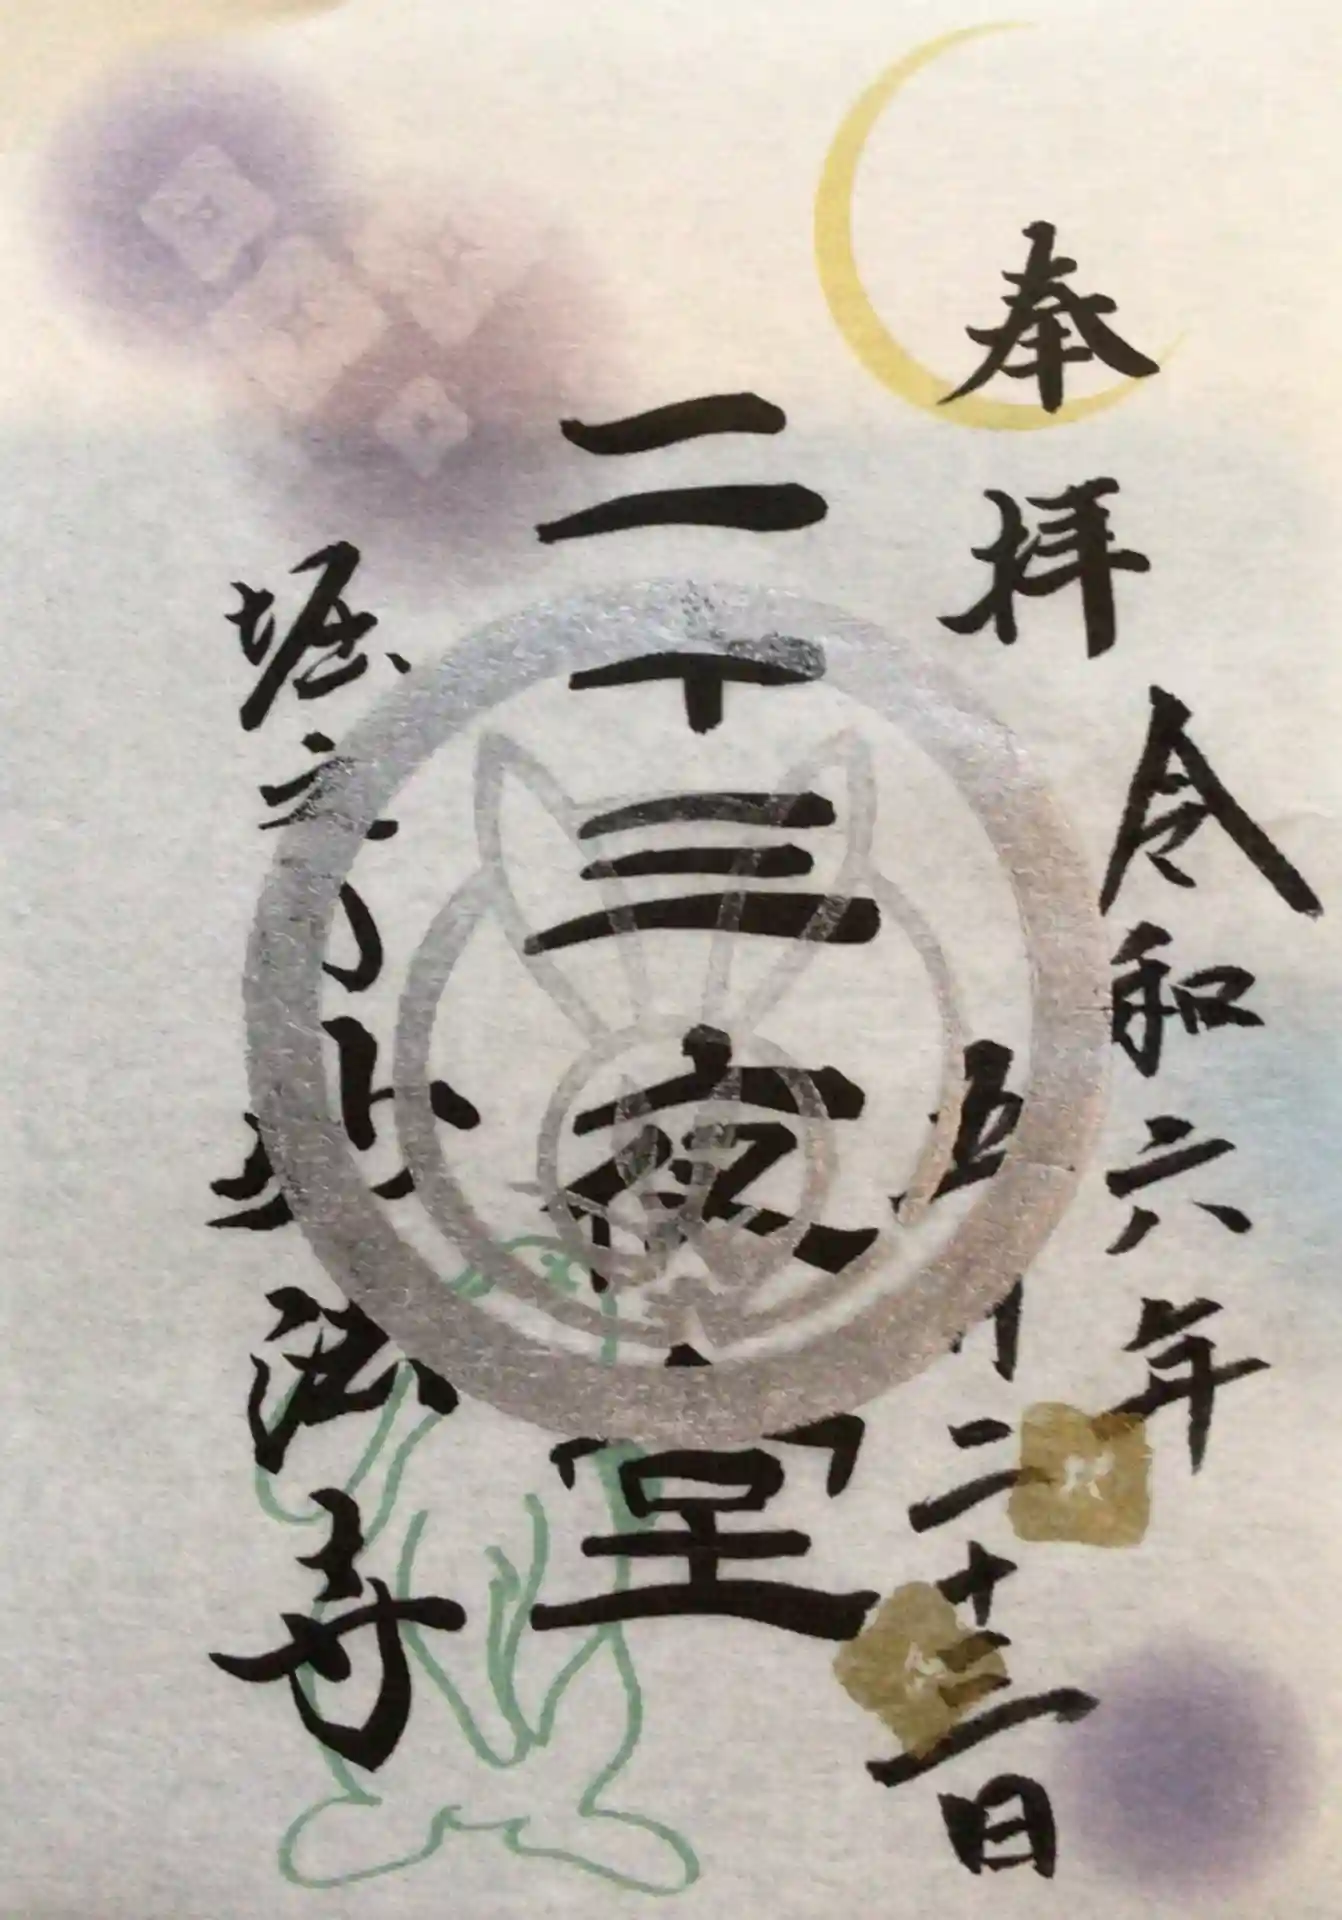 奉拝
令和六年
五月二十三日
二十三夜堂
堀之内
妙法寺